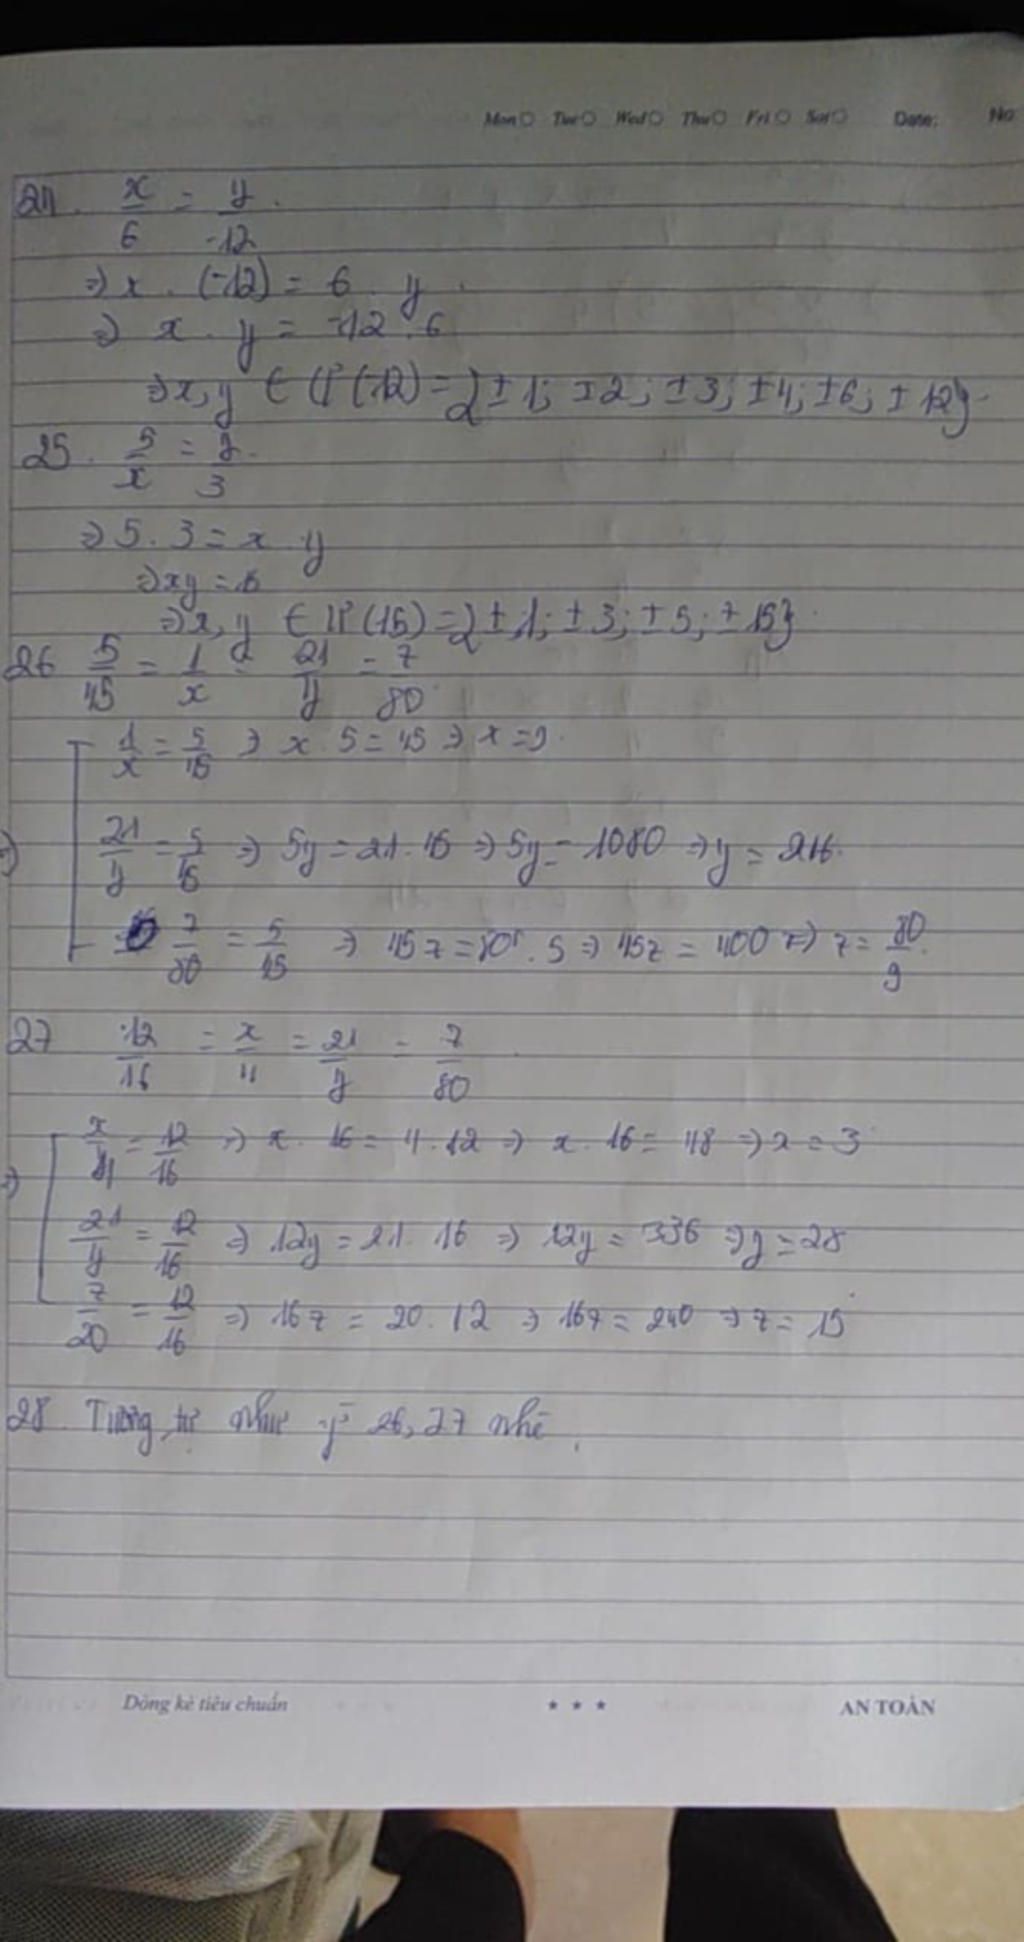 Mon Tue Wed Thu Fri Sat Date: No
24. x/6 = y/-12.
=> x . (-12) = 6 . y.
=> x . y = -12 . 6
=> x, y ∈ Ư(-12) = {±1; ±2; ±3; ±4; ±6; ±12}.
25. 5/x = y/3.
=> 5 . 3 = x . y
=> xy = 15
=> x, y ∈ Ư(15) = {±1; ±3; ±5; ±15}.
26 5/45 = 1/x = 21/y = z/80.
1/x = 5/45 => x . 5 = 45 => x = 9.
=> 21/y = 5/45 => 5y = 21 . 45 => 5y = 1080 => y = 216.
z/80 = 5/45 => 45z = 80 . 5 => 45z = 400 => z = 80/9.
27 12/16 = x/4 = 21/y = z/80
x/4 = 12/16 => x . 16 = 4 . 12 => x . 16 = 48 => x = 3
=> 21/y = 12/16 => 12y = 21 . 16 => 12y = 336 => y = 28
z/20 = 12/16 => 16z = 20 . 12 => 16z = 240 => z = 15
28. Tương tự như ý 26, 27 nhé.
Dòng kẻ tiêu chuẩn * * * AN TOÀN